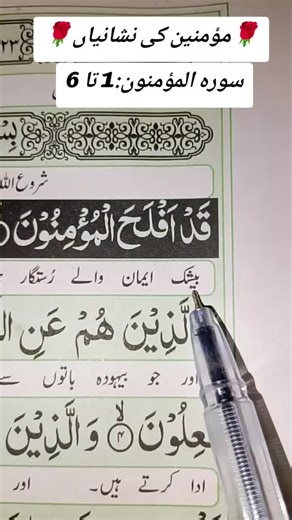 🌹 مؤمنین کی نشانیاں 🌹
سورہ المؤمنون:1 تا 6
٢٣
شروع الله
قَدْ اَفْلَحَ الْمُؤْمِنُوْنَ
بیشک ایمان والے رُستگار
الَّذِيْنَ هُمْ عَنِ
اور جو بیہودہ باتوں سے
عِلُوْنَ ۙ﴿٤﴾ وَالَّذِيْنَ
ادا کرتے ہیں۔ اور